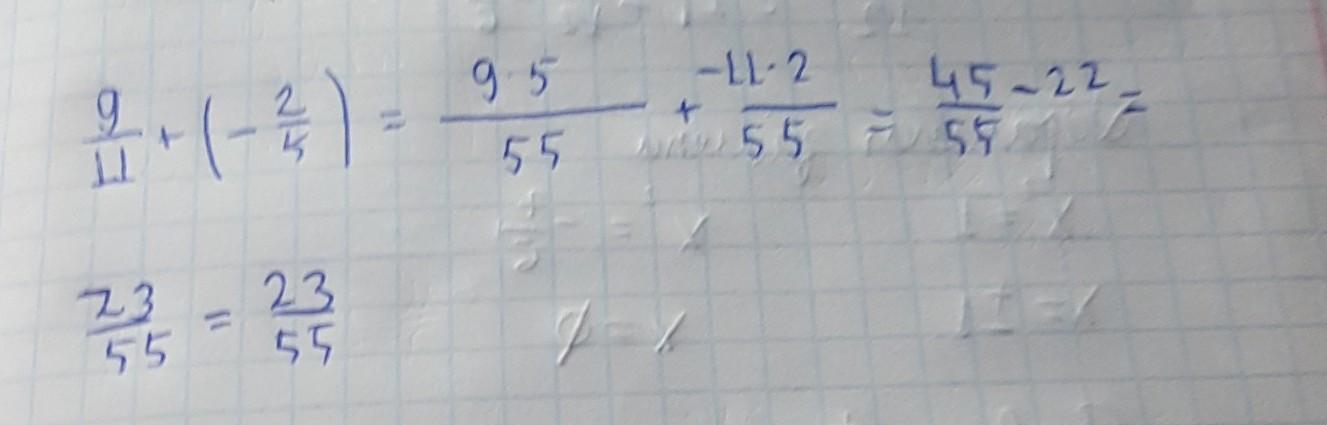 9/11 + (-2/5) = 9·5/55 + -11·2/55 = 45-22/55 =
23/55 = 23/55